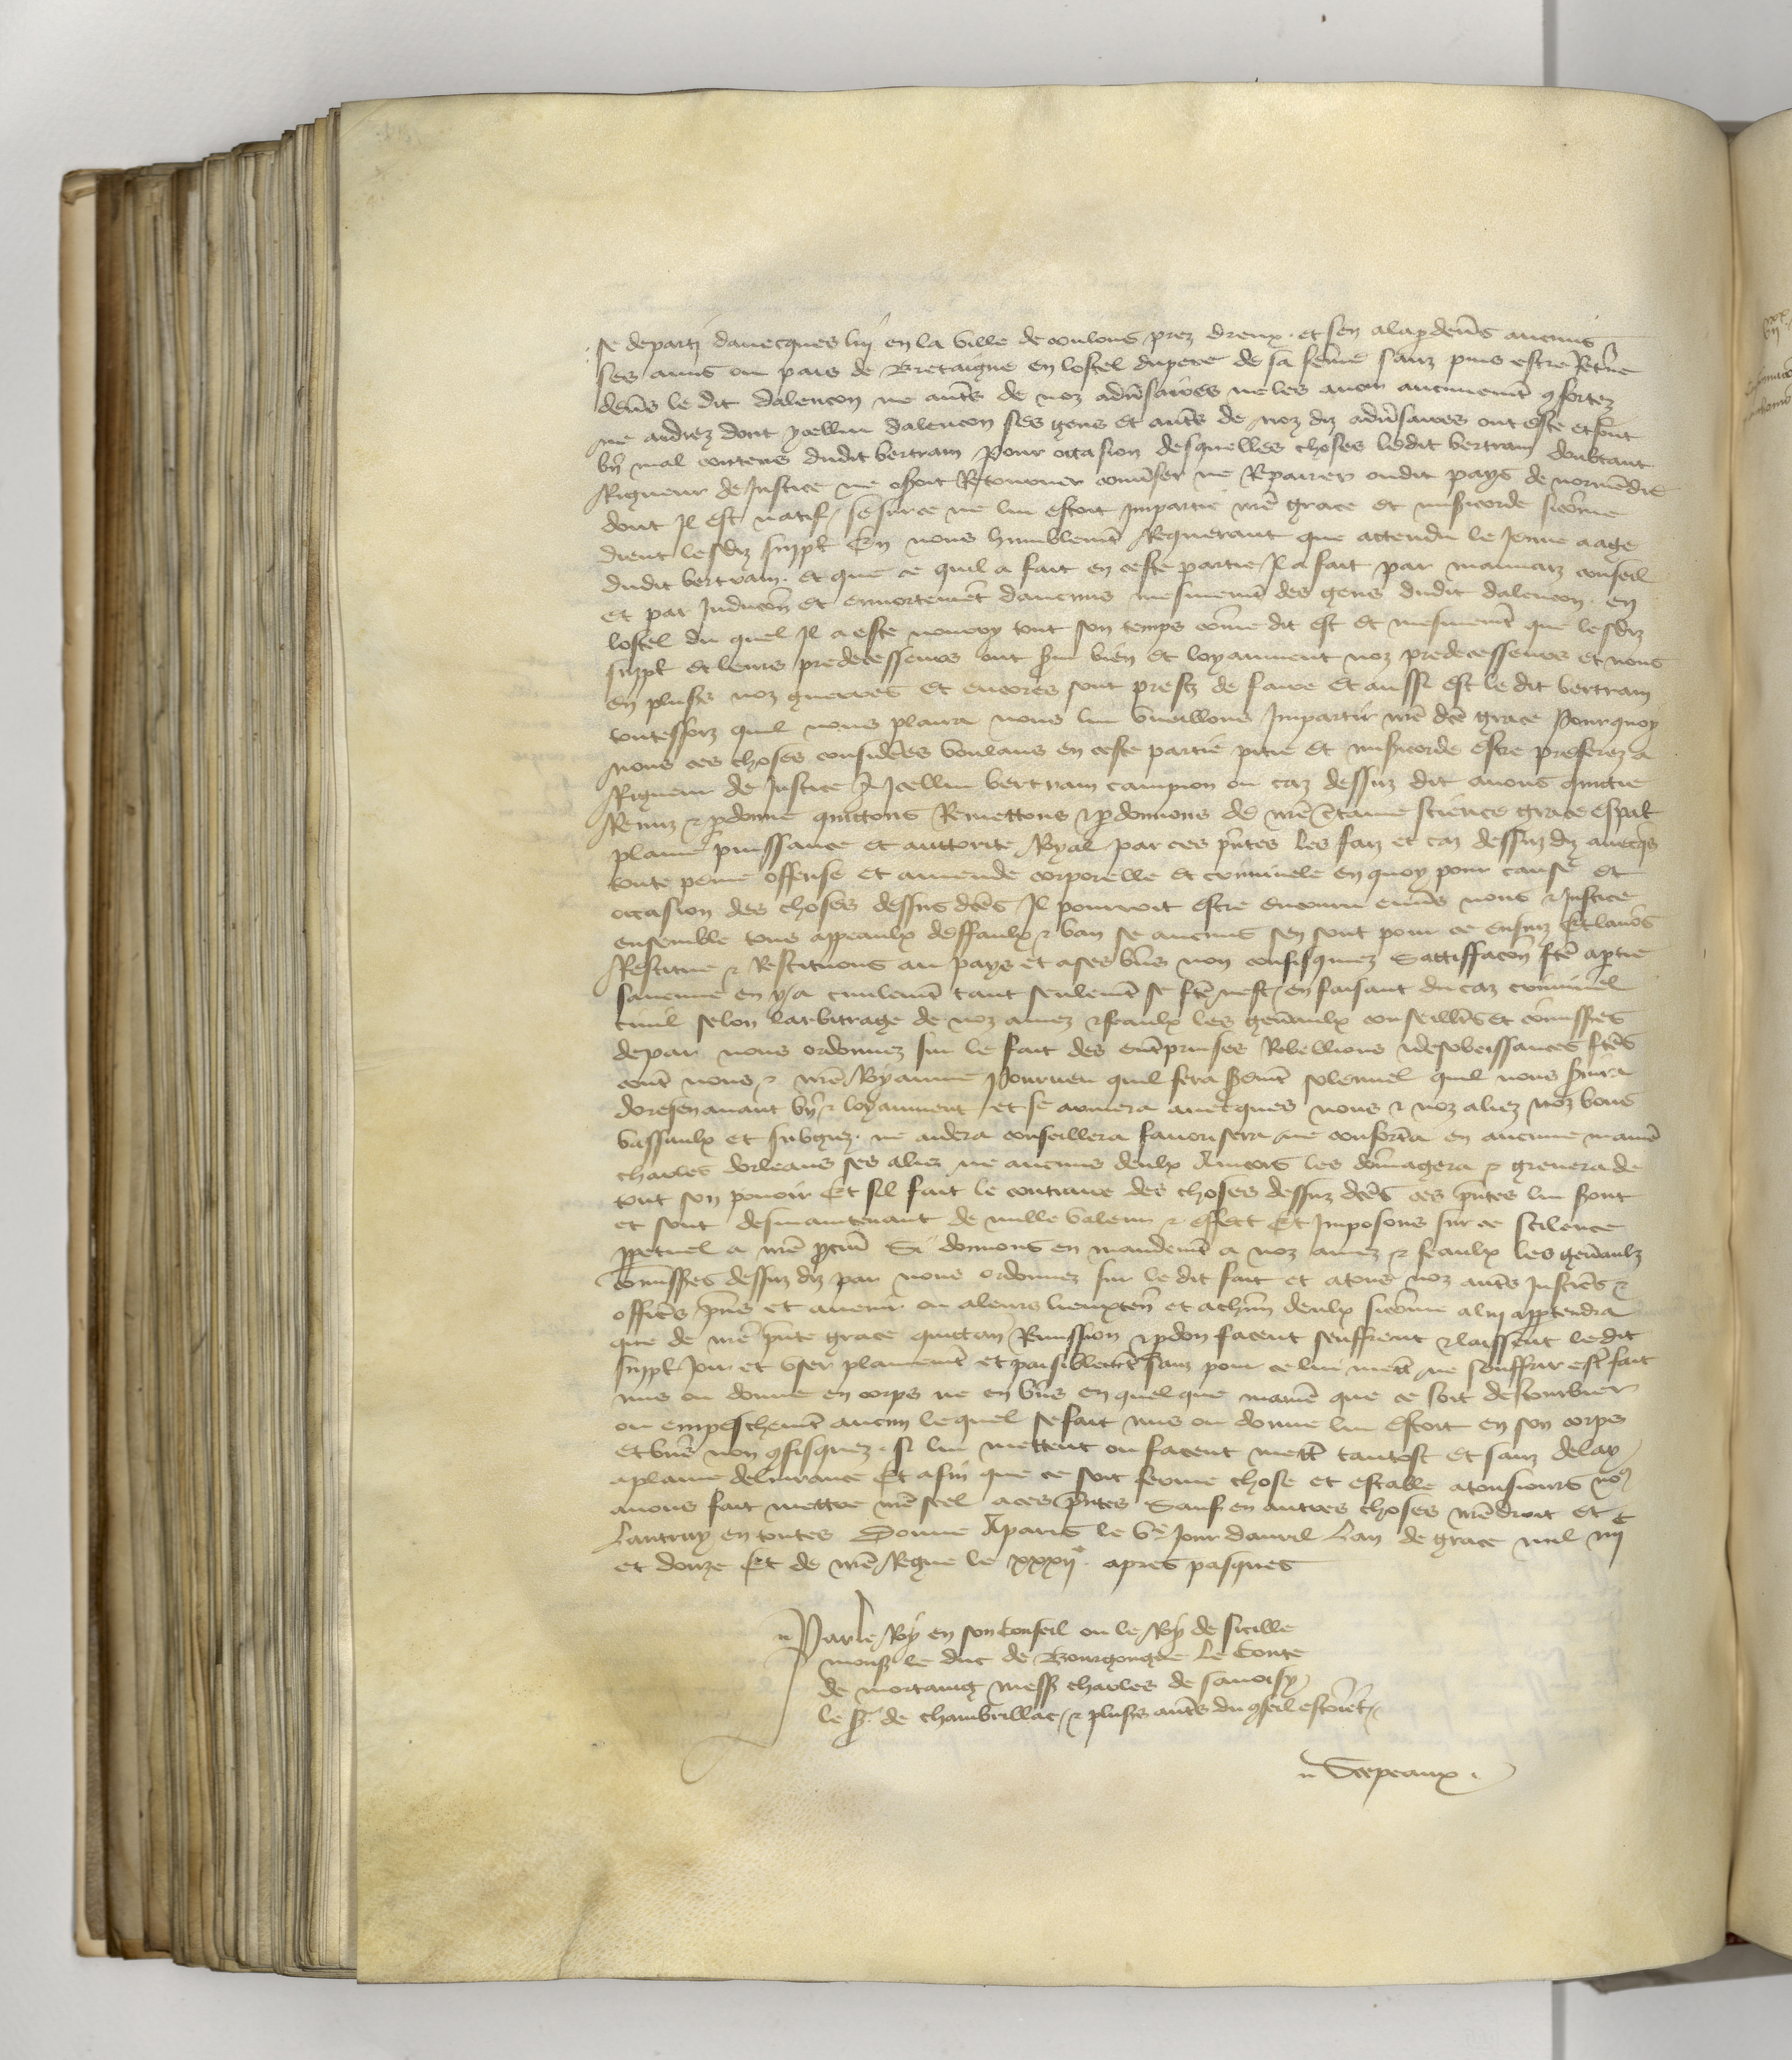 se departi davecques lui en la ville de coulons prez dreux. et sen ala p deu͂s aucuns
ses amis ou pais de Bretaigne en lostel du pere de sa fem͂e sanz puis estre Ret͂ne
deu͂s le dit dalencon ne aut͂s de noz adu͂saires ne les avoir aucunem͂t ꝯfortez
ne aidiez dont ycellui dalencon ses gens et aut͂s de noz diz adu͂saires ont este et sont
bn͂ mal contens dudit bertram Pour occasion desquelles choses ledit bertram doubtant
Rigueur de Justice ne oseroit Retourner convu͂ser ne Repairer oudit pays de normẽdie
dont Il est natif / se sur ce ne lui estoit Impartie nr͂e grace et mis͂icorde sicõme
dient lesdiz suppl͂ En nous humblem͂t Requerant que attendu le Jeune aage
dudit bertram. et que ce quil a fait en ceste partie Il a fait par mauvaiz conseil
et par Inducõn et ennortem͂et daucuns mesmem͂t des gens dudit dalencon. en
lostel du quel Il a este nourry tout son temps cõme dit est et mesmem͂t que lesdiz
suppl͂ et leurs predecesseurs ont s͂vi bien et loyaument noz predecesseurs et nous
en plus͂rs noz guerres et encores sont prestz de faire et aussi est le dit bertram
toutesfoiz quil nous plaira nous lui vueillons Impartir nr͂e dc͂e grace Pour quoy
Nous ces choses consider͂es voulans en ceste partie pitie et mis͂icorde estre preferez a
Rigueur de Justice A Icellui bertram campion ou caz dessuz dit avons quictie
Remiz ⁊ ꝑdonne quictons Remettons ⁊ ꝑdonnons de nr͂e c͂taine science grace esp͂al
plaine puissance et auctorite Royal par ces pn͂tes les faiz et caz dessuz diz avecqs
toute peine offense et amende corporelle et criminele en quoy pour cause et
occasion des choses dessus dc͂es Il pourroit estre encouru enu͂s nous ⁊ Justice
ensemble tous appeaulx deffaulx ⁊ ban se aucuns sen sont pour ce ensuiz Et lavõs
Restitue ⁊ Restituons au pays et a ses bn͂s non confisquez Satisffacõn fc͂e a ꝑtie
saucune en y a civilem͂t tant seulem͂t se fc͂e nest / en faisant du caz criminel
civil selon larbitrage de noz amez ⁊ feaulx les gen͂aulx conseill͂rs et cõmiss͂res
de par nous ordonnez sur le fait des ent͂prinses Rebellions ⁊ desobeissances fc͂es
cont͂ nous ⁊ nr͂e Royaume Pourveu quil fera s͂em͂t solennel quil nous s͂vira
doresenavant bn͂ ⁊ loyaument et se armera avecques nous ⁊ noz aliez noz bons
vassaulx et subgiez. ne aidera conseillera favorisera ne confort͂a en aucune manie͂
charles dorleans ses aliez ne aucuns deulx Aincois les dõmagera ⁊ grevera de
tout son povoir Et sil fait le contraire des choses dessuz dc͂es ces pn͂tes lui s͂ont
et sont desmaintenant de nulle valeur ⁊ effect Et Imposons sur ce scilence
ꝑpetuel a nr͂e ꝓcur͂ Si donnons en mandem͂t a noz amez ⁊ feaulx les gen͂aulx
cõmiss͂res dessuz diz par nous ordonnez sur le dit fait et a tous noz aut͂s Justic͂es ⁊
offic͂es pn͂s et avenir ou a leurs lieuxten͂ et a ch͂un deulx sicõme a lui apꝑtendra
que de nr͂e pn͂te grace quictan͂ Remission ⁊ ꝑdon facent seuffrent ⁊ laissent le dit
suppl͂ Joir et user plainem͂t et paisiblem͂t sanz pour ce lui mett͂ ne souffrir est͂ fait
mis ou donne en corps ne en bn͂s en quelque manie͂ que ce soit destourbier
ou empeschem͂t aucun lequel se fait mis ou donne lui estoit en son corps
et bn͂s non ꝯfisquez. si lui mettent ou facent mett͂ tantost et sanz delay
a plaine delivrance Et afin que ce soit ferme chose et estable a tousiours no᷒
avons fait mettre nr͂e seel a ces pn͂tes Sauf en autres choses nr͂e droit et
Lautruy en toutes Donne A paris le vᵉ Jour davril Lan de grace mil iiijᶜ
et douze Et de nr͂e Regne le xxxijᵉ. apres pasques
Par le Roy en son conseil ou le Roy de sicille
mons͂ le duc de Bourgongne Le Conte
de mortaing mess͂ charles de savoisy
le s͂ʳ de chambrillac / ⁊ plus͂rs aut͂s du ꝯseil estoiẽt
Serpeaux.